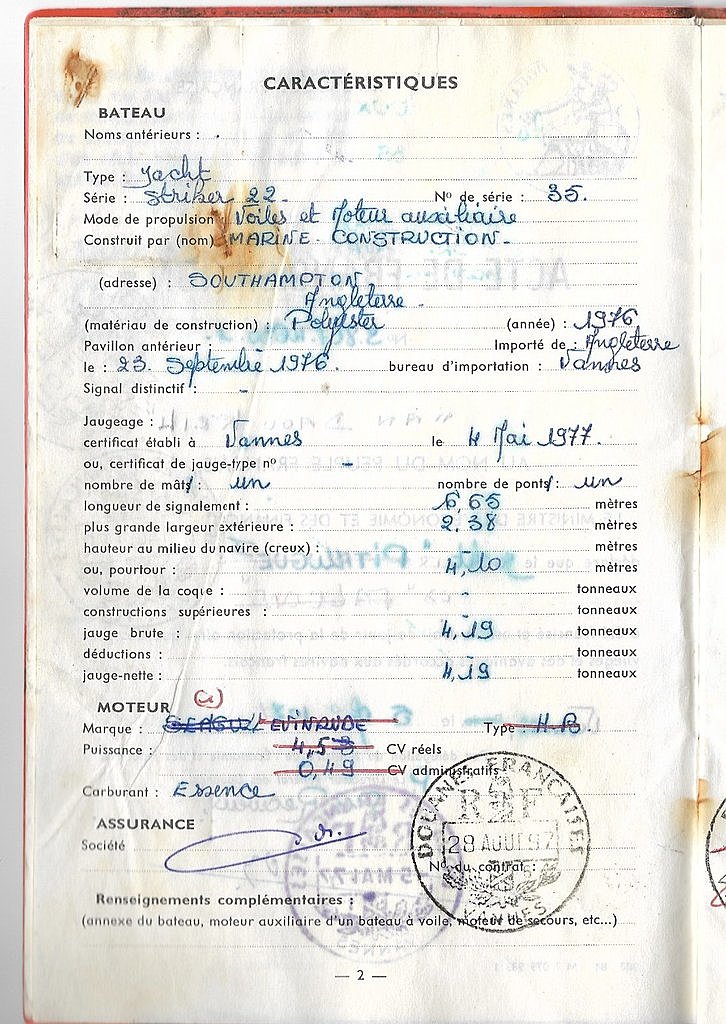 CARACTÉRISTIQUES
BATEAU
Noms antérieurs :
Type : Yacht
Série : Striker 22 - Nº de série : 35.
Mode de propulsion : Voiles et Moteur auxiliaire
Construit par (nom) MARINE - CONSTRUCTION -
(adresse) : SOUTHAMPTON
Angleterre -
(matériau de construction) : Polyester (année) : 1976
Pavillon antérieur : Importé de : Angleterre
le : 23. Septembre 1976. bureau d'importation : Vannes
Signal distinctif : -
Jaugeage :
certificat établi à Vannes le 4 Mai 1977.
ou, certificat de jauge-type nº -
nombre de mâts : un nombre de ponts : un
longueur de signalement : 6,65 mètres
plus grande largeur extérieure : 2,38 mètres
hauteur au milieu du navire (creux) : - mètres
ou, pourtour : 4,10 mètres
volume de la coque : - tonneaux
constructions supérieures : tonneaux
jauge brute : 4,19 tonneaux
déductions : tonneaux
jauge-nette : 4,19 tonneaux
MOTEUR (a)
Marque : EVINRUDE Type : H.B.
Puissance : 4,5 CV réels
0,49 CV administratifs
Carburant : Essence
ASSURANCE
Société
Nº du contrat :
DOUANES FRANÇAISES
R F
28 AOUT 97
VANNES
Renseignements complémentaires :
(annexe du bateau, moteur auxiliaire d'un bateau à voile, moteur de secours, etc...)
— 2 —